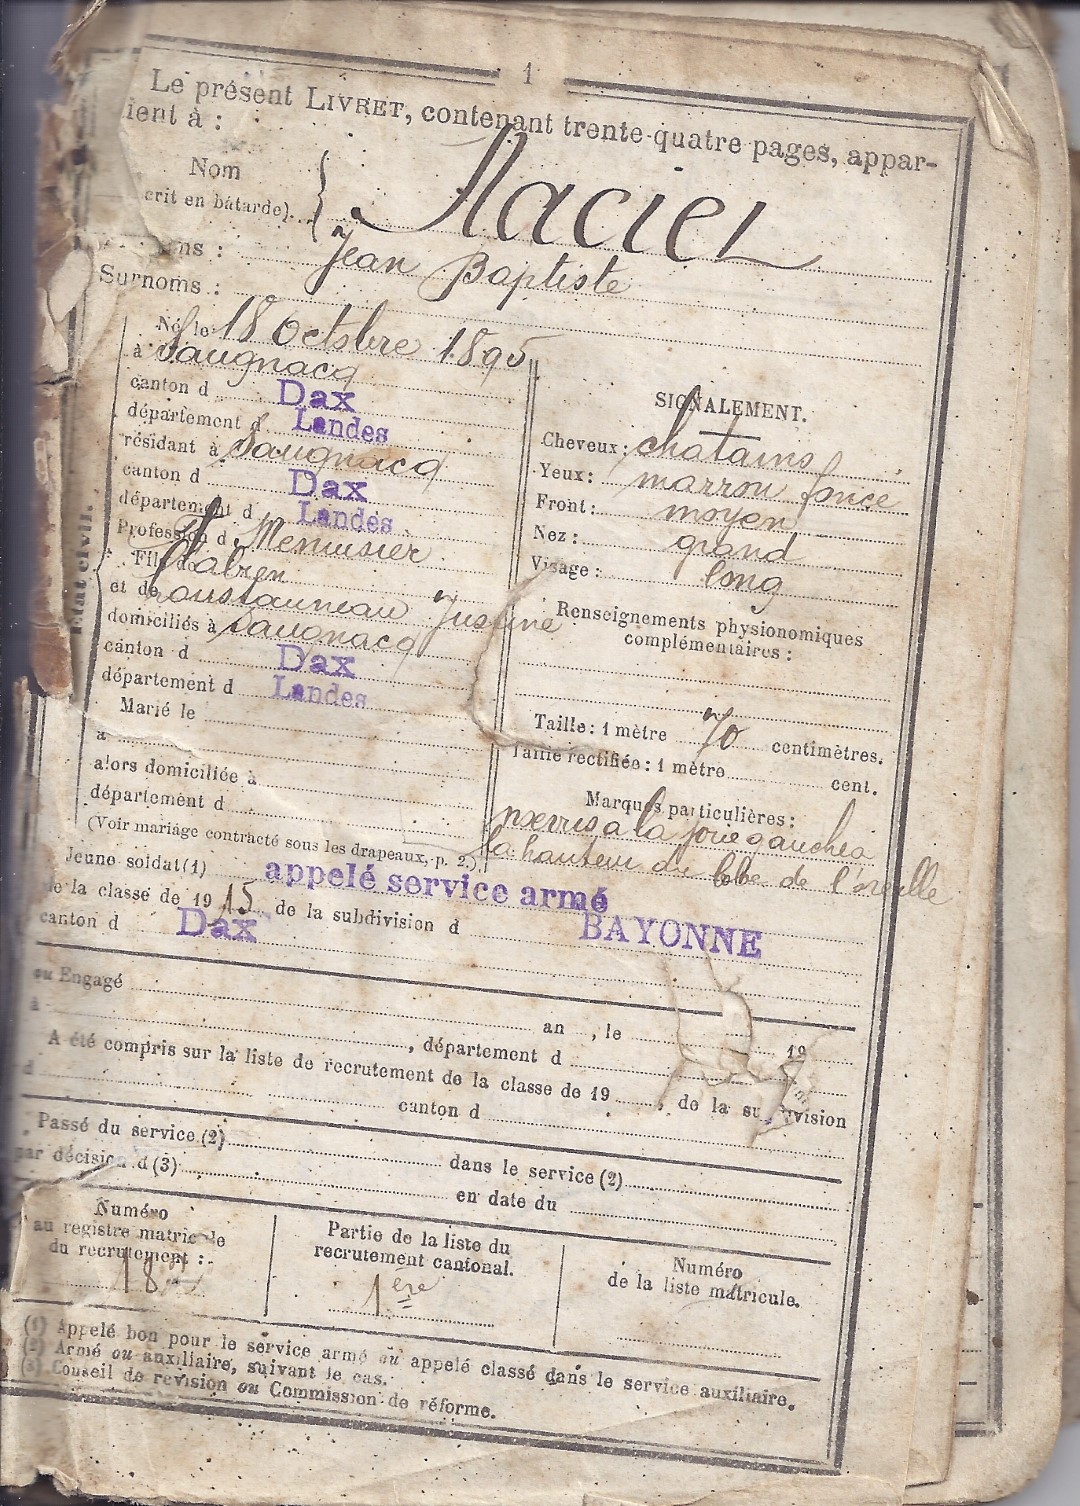 1
Le présent LIVRET, contenant trente-quatre pages, appar-
ient à :
Nom
crit en bâtarde).
Maciel
ns : Jean Baptiste
Surnoms :
Né le 18 Octobre 1895
à Saugnacq
canton d Dax
département d Landes
résidant à Saugnacq
canton d Dax
département d Landes
Profession d Menuisier
Fils de
et de Loustauneau Justine
domiciliés à Saugnacq
canton d Dax
département d Landes
Marié le
à
alors domiciliée à
département d
(Voir mariage contracté sous les drapeaux, p. 2.)
État civil.
SIGNALEMENT.
Cheveux : chatains
Yeux : marron foncé
Front : moyen
Nez : grand
Visage : long
Renseignements physionomiques
complémentaires :
Taille : 1 mètre 70 centimètres.
Taille rectifiée : 1 mètre cent.
Marques particulières :
à la joue gauche à
la hauteur du lobe de l'oreille
Jeune soldat (1) appelé service armé
de la classe de 1915 de la subdivision d BAYONNE
canton d Dax
ou Engagé
à an , le 19
, département d
A été compris sur la liste de recrutement de la classe de 19 , de la subdivision
d canton d
Passé du service (2) dans le service (2)
par décision d (3) en date du
Numéro
au registre matricule
du recrutement :
Partie de la liste du
recrutement cantonal.
1ère
Numéro
de la liste matricule.
(1) Appelé bon pour le service armé ou appelé classé dans le service auxiliaire.
(2) Armé ou auxiliaire, suivant le cas.
(3) Conseil de revision ou Commission de réforme.